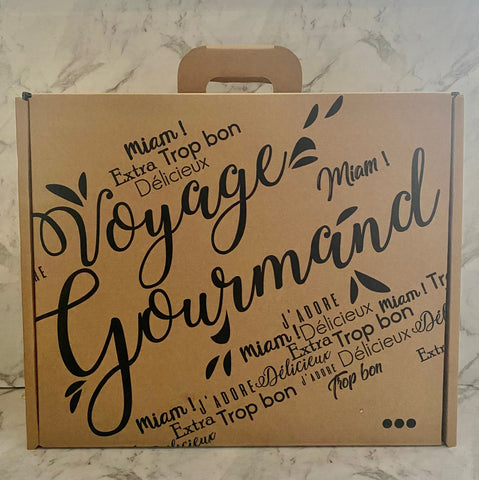 Miam !
Extra Trop bon
Délicieux
Voyage
Miam !
Gourmand
J'ADORE
Miam ! Délicieux Miam ! Tro
Extra Trop bon Dél
J'ADORE Délicieux Extr
Trop bon
Miam ! J'ADORE Délicieux
Extra Trop bon
licieux